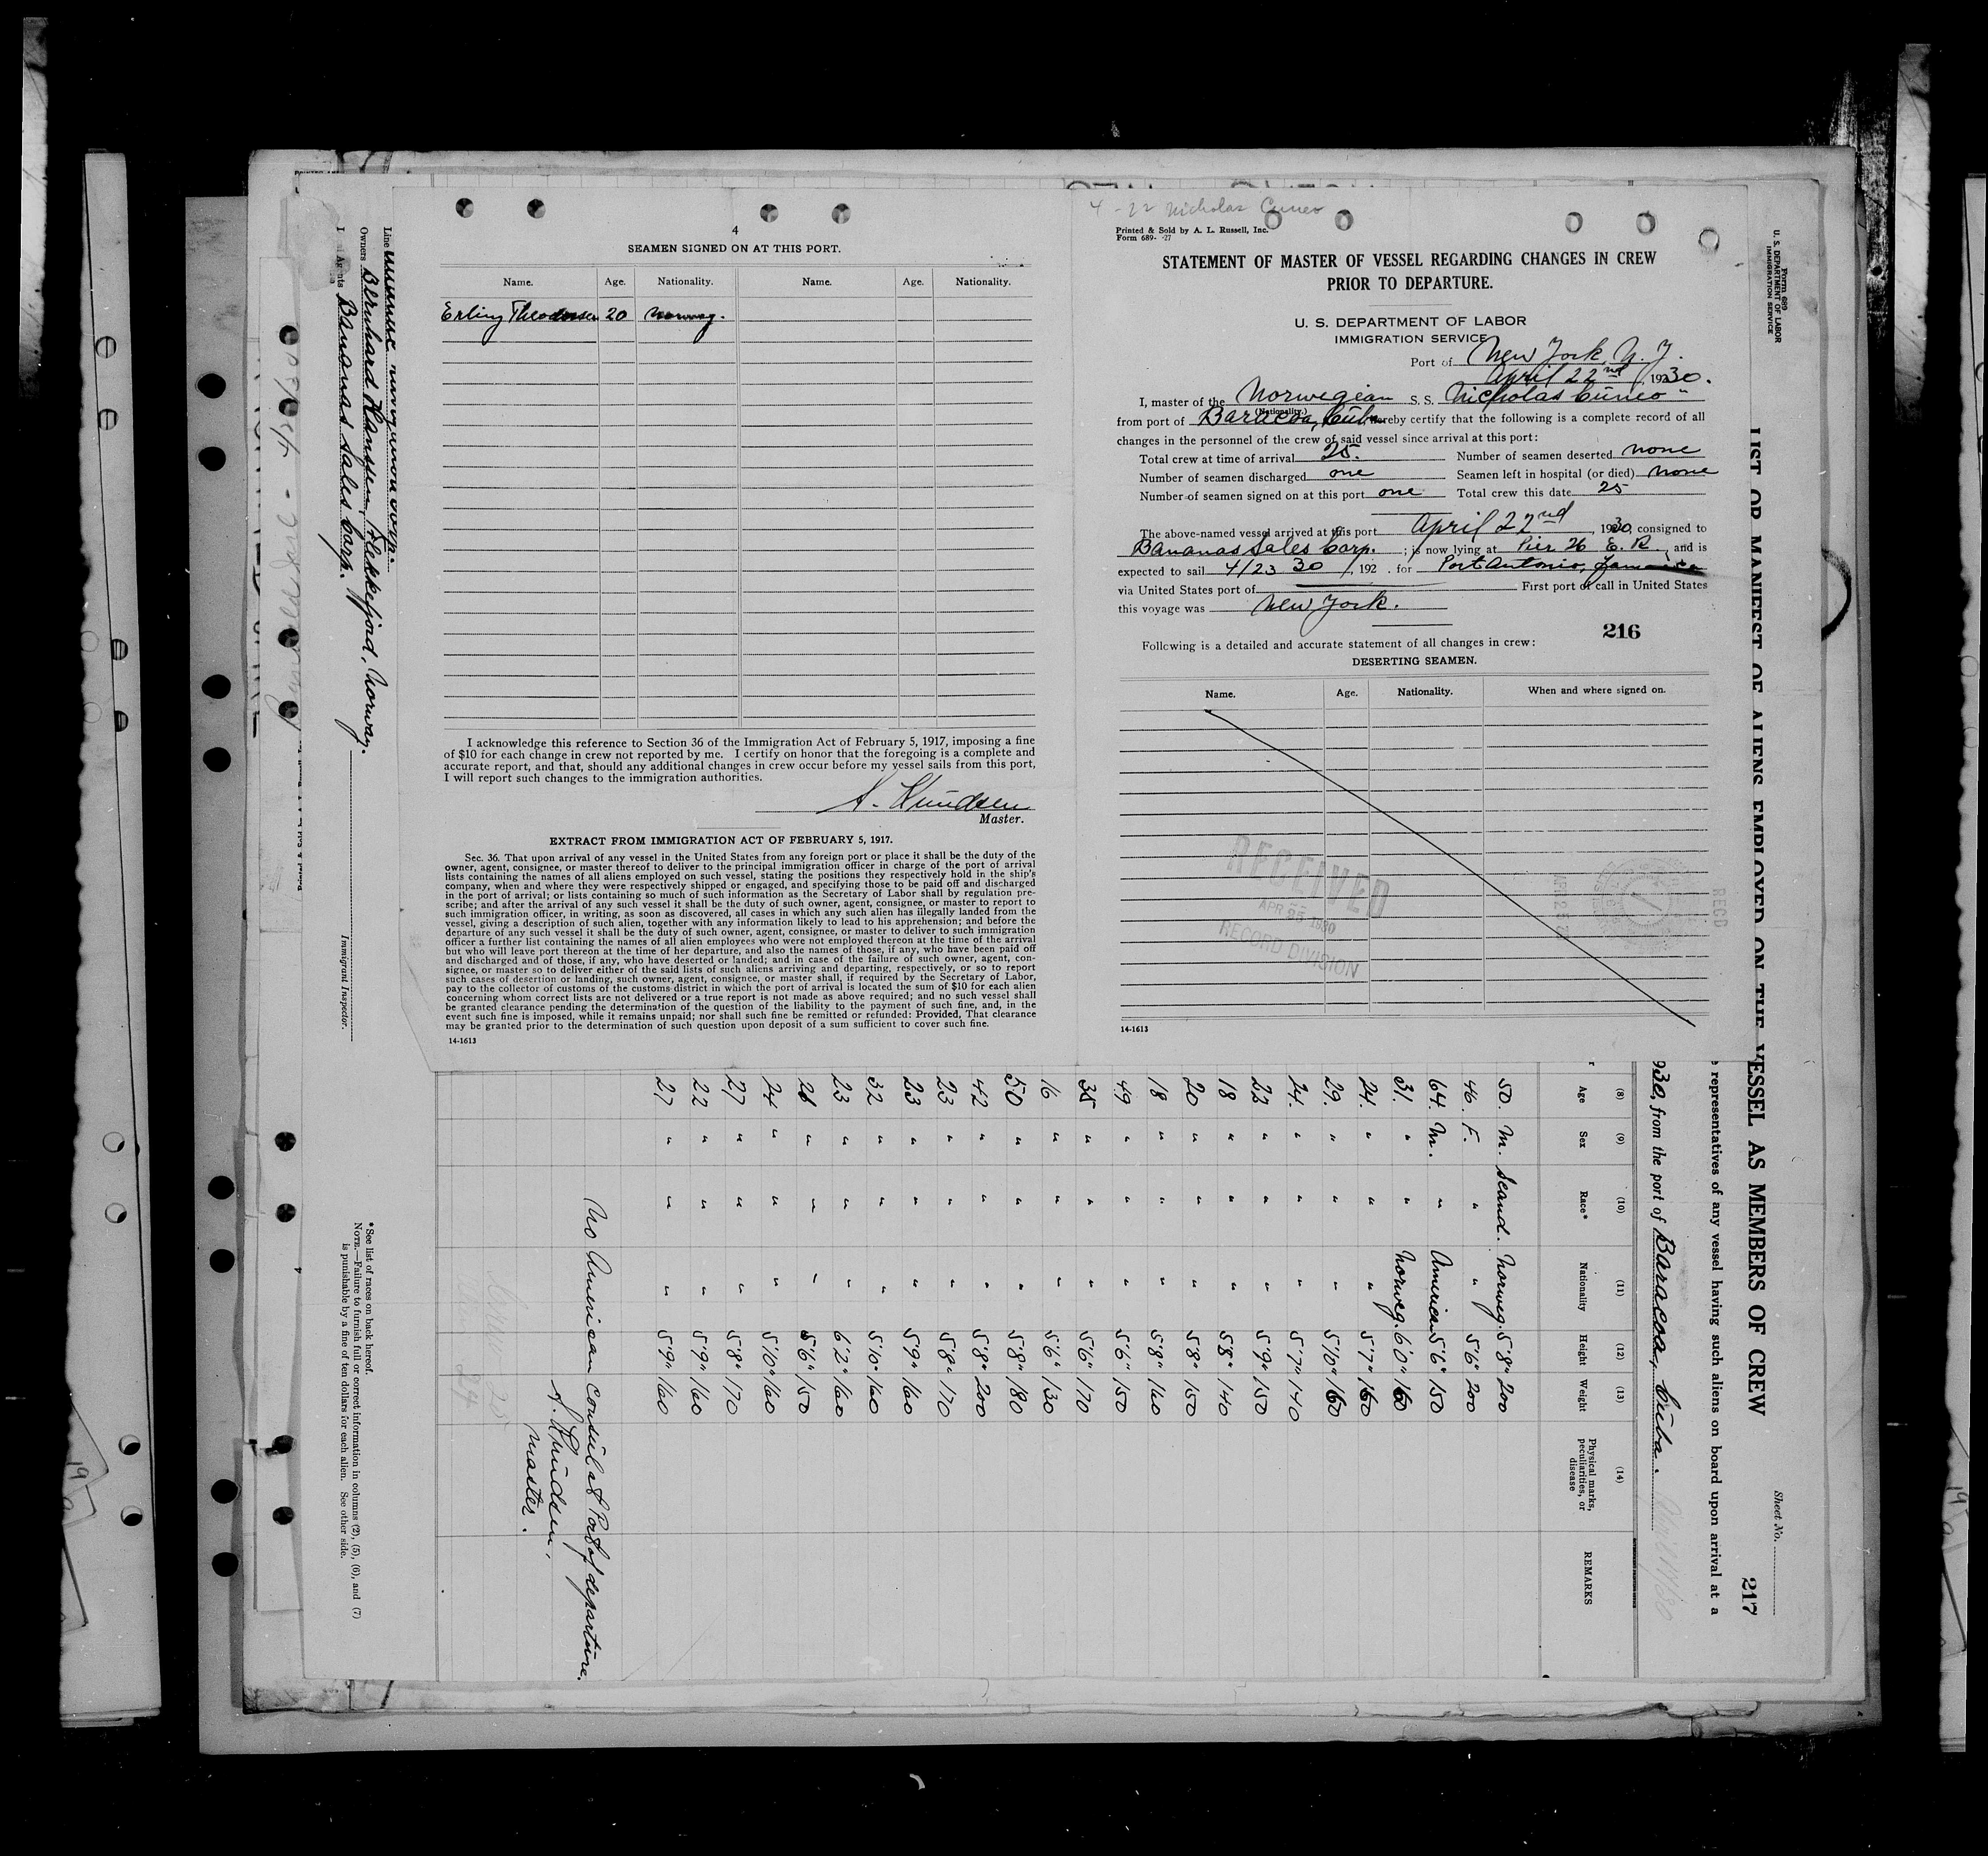 4
SEAMEN SIGNED ON AT THIS PORT.
Name. Age. Nationality. Name. Age. Nationality.
Erling 20 Norweg.
I acknowledge this reference to Section 36 of the Immigration Act of February 5, 1917, imposing a fine
of $10 for each change in crew not reported by me. I certify on honor that the foregoing is a complete and
accurate report, and that, should any additional changes in crew occur before my vessel sails from this port,
I will report such changes to the immigration authorities.
A. Knudsen
Master.
EXTRACT FROM IMMIGRATION ACT OF FEBRUARY 5, 1917.
Sec. 36. That upon arrival of any vessel in the United States from any foreign port or place it shall be the duty of the
owner, agent, consignee, or master thereof to deliver to the principal immigration officer in charge of the port of arrival
lists containing the names of all aliens employed on such vessel, stating the positions they respectively hold in the ship's
company, when and where they were respectively shipped or engaged, and specifying those to be paid off and discharged
in the port of arrival; or lists containing so much of such information as the Secretary of Labor shall by regulation pre-
scribe; and after the arrival of any such vessel it shall be the duty of such owner, agent, consignee, or master to report to
such immigration officer, in writing, as soon as discovered, all cases in which any such alien has illegally landed from the
vessel, giving a description of such alien, together with any information likely to lead to his apprehension; and before the
departure of any such vessel it shall be the duty of such owner, agent, consignee, or master to deliver to such immigration
officer a further list containing the names of all alien employees who were not employed thereon at the time of the arrival
but who will leave port thereon at the time of her departure, and also the names of those, if any, who have been paid off
and discharged and of those, if any, who have deserted or landed; and in case of the failure of such owner, agent, con-
signee, or master so to deliver either of the said lists of such aliens arriving and departing, respectively, or so to report
such cases of desertion or landing, such owner, agent, consignee, or master shall, if required by the Secretary of Labor,
pay to the collector of customs of the customs district in which the port of arrival is located the sum of $10 for each alien
concerning whom correct lists are not delivered or a true report is not made as above required; and no such vessel shall
be granted clearance pending the determination of the question of the liability to the payment of such fine, and, in the
event such fine is imposed, while it remains unpaid; nor shall such fine be remitted or refunded: Provided, That clearance
may be granted prior to the determination of such question upon deposit of a sum sufficient to cover such fine.
14-1613
4-22 Nicholas Cuneo
Printed & Sold by A. L. Russell, Inc.
Form 689- -27
STATEMENT OF MASTER OF VESSEL REGARDING CHANGES IN CREW
PRIOR TO DEPARTURE.
U. S. DEPARTMENT OF LABOR
IMMIGRATION SERVICE
Port of New York, N. Y.
April 22nd, 1930.
I, master of the Norwegian S. S. Nicholas Cuneo"
(Nationality.)
from port of Baracoa, Cuba hereby certify that the following is a complete record of all
changes in the personnel of the crew of said vessel since arrival at this port:
Total crew at time of arrival 25. Number of seamen deserted none
Number of seamen discharged one Seamen left in hospital (or died) none
Number of seamen signed on at this port one Total crew this date 25
The above-named vessel arrived at this port April 22nd, 1930, consigned to
Bananas Sales Corp. ; is now lying at Pier 26 E. R., and is
expected to sail 4/23 30, 192 . for Port Antonio, Jamaica
via United States port of First port of call in United States
this voyage was New York.
216
Following is a detailed and accurate statement of all changes in crew:
DESERTING SEAMEN.
Name. Age. Nationality. When and where signed on.
RECEIVED
APR 25 1930
RECORD DIVISION
REC'D
14-1613
Form 689
U. S. DEPARTMENT OF LABOR
IMMIGRATION SERVICE
Sheet No.
217
LIST OR MANIFEST OF ALIENS EMPLOYED ON THE VESSEL AS MEMBERS OF CREW
representatives of any vessel having such aliens on board upon arrival at a
930, from the port of Baracoa, Cuba.
(8) (9) (10) (11) (12) (13) (14)
Age Sex Race* Nationality Height Weight Physical marks, peculiarities, or disease REMARKS
50. M. Scand. Norweg. 5'8" 200
46. F. " " 5'6" 200
64. M. " American 5'6" 150
31. " " Norweg. 6'0" 160
24. " " " 5'7" 160
29. " " " 5'10" 160
24. " " " 5'7" 140
22 " " " 5'9" 150
18 " " " 5'8" 140
20 " " " 5'8" 150
18 " " " 5'8" 160
49 " " " 5'6" 150
35 " " " 5'6" 170
16 " " " 5'6" 130
50 " " " 5'8" 180
42 " " " 5'8" 200
23 " " " 5'8" 170
23 " " " 5'9" 160
32 " " " 5'10" 160
23 " " " 6'2" 160
21 " " " 5'6" 150
24 " " " 5'10" 160
27 " " " 5'8" 170
22 " " " 5'9" 160
27 " " " 5'9" 160
No American Consul at Port of departure.
A. Knudsen,
Master.
Crew 25
Line
Owners Bernhard Hanssen, Flekkefjord, Norway.
Agents Bananas Sales Corp.
Immigrant Inspector.
*See list of races on back hereof.
NOTE.—Failure to furnish full or correct information in columns (2), (5), (6), and (7)
is punishable by a fine of ten dollars for each alien. See other side.